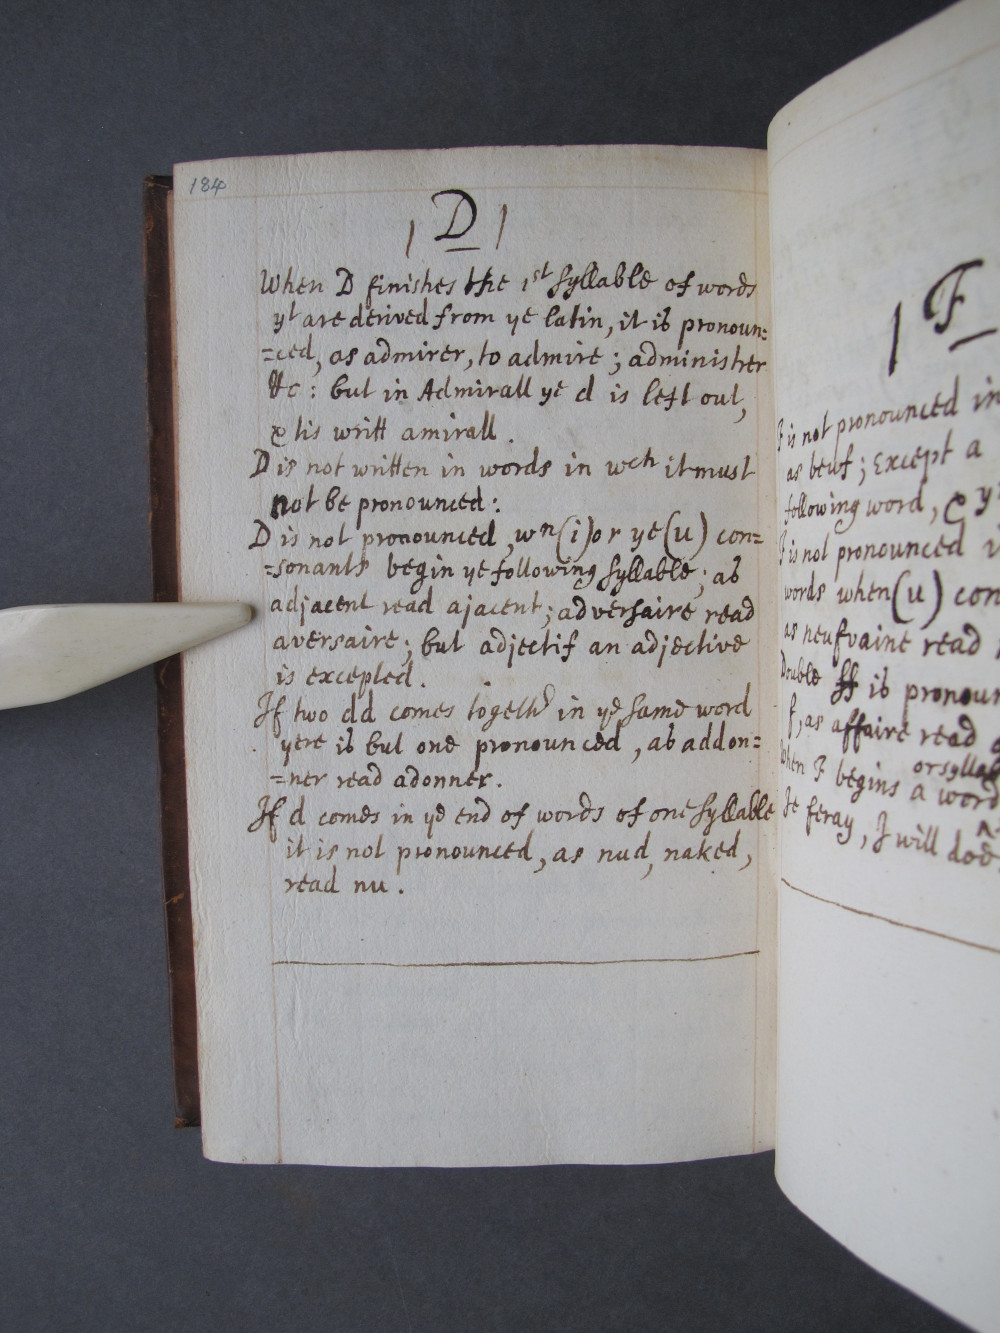 184
D
When D finishes the 1st syllable of words
yt are derived from ye latin, it is pronoun=
=ced, as admirer, to admire; administrer
&c: but in Admirall ye d is left out,
& tis writt amirall.
D is not written in words in wch it must
not be pronounced:
D is not pronounced, wn (i) or ye (u) con=
=sonants begin ye following syllable; as
adjacent read ajacent; adversaire read
aversaire; but adjectif an adjective
is excepted.
If two dd comes togethr in ye same word
yere is but one pronounced, as addon=
=ner read adonner.
If d comes in ye end of words of one syllable
it is not pronounced, as nud, naked,
read nu.
F
F is not pronounced in
as beuf; Except a
following word, &
F is not pronounced
words when (u) con
as neufvaine read
Double ff is pronoun
f, as affaire read
or syllab
When F begins a word
Je feray, I will doe